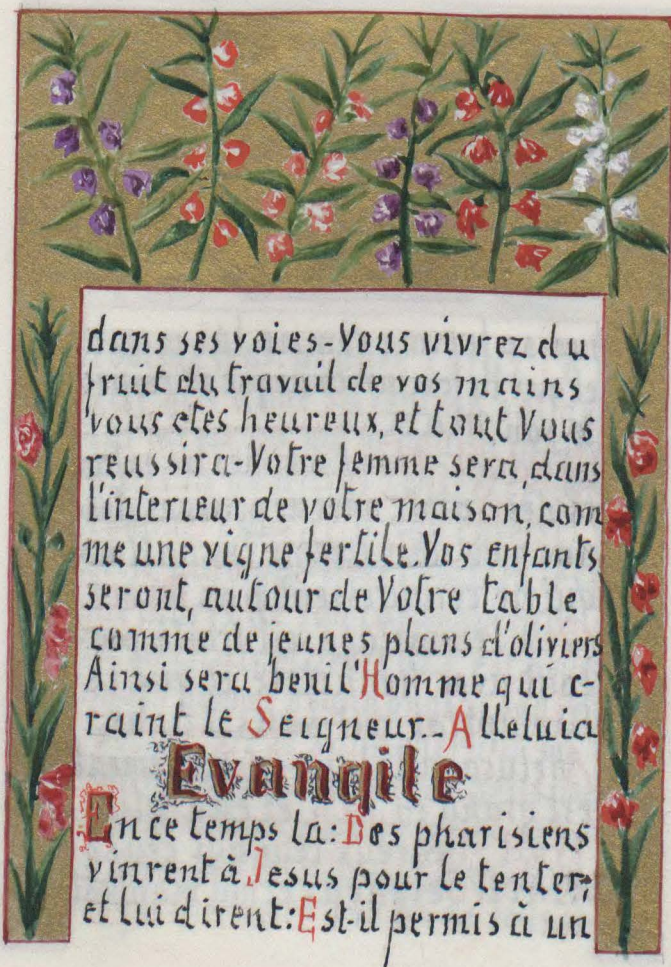 dans ses voies-Vous vivrez du
fruit du travail de vos mains
vous etes heureux, et tout Vous
reussira-Votre femme sera, dans
l'interieur de votre maison, com
me une vigne fertile. Vos enfants
seront, autour de Votre table
comme de jeunes plans d'oliviers
Ainsi sera beni l'Homme qui c-
raint le Seigneur.-Alleluia
Evangile
En ce temps la: Des pharisiens
vinrent à Jesus pour le tenter;
et lui dirent: Est-il permis à un